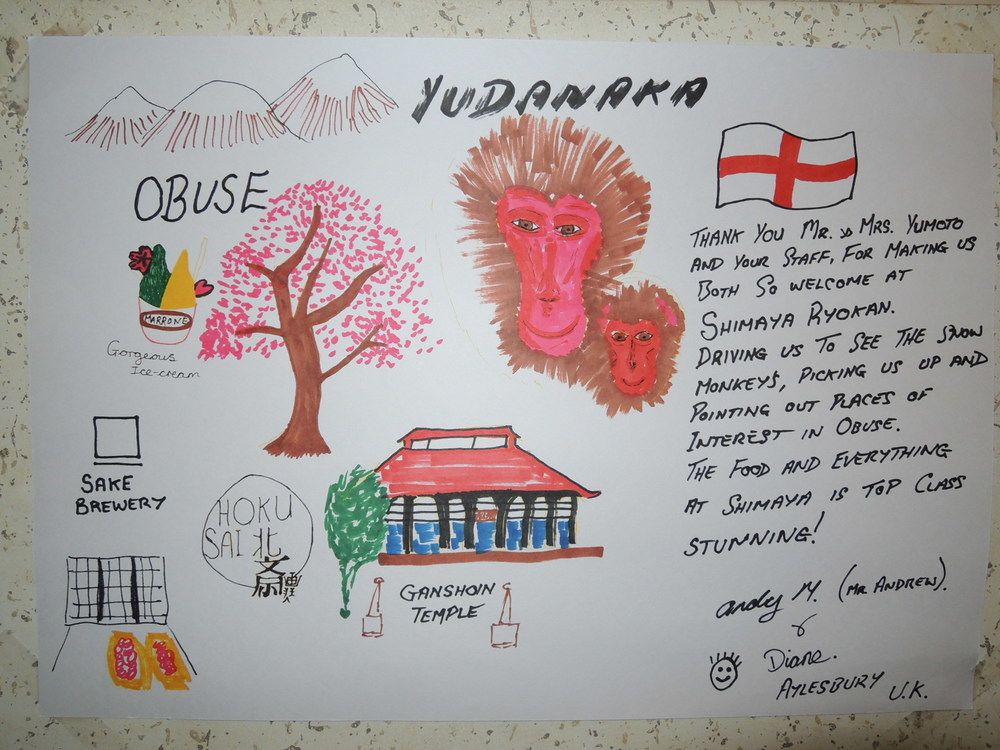 YUDANAKA
OBUSE
MARRONE
Gorgeous
Ice-cream
SAKE
BREWERY
HOKU
SAI 北
斎
GANSHOIN
TEMPLE
THANK YOU MR. & MRS. YUMOTO
AND YOUR STAFF, FOR MAKING US
BOTH SO WELCOME AT
SHIMAYA RYOKAN.
DRIVING US TO SEE THE SNOW
MONKEYS, PICKING US UP AND
POINTING OUT PLACES OF
INTEREST IN OBUSE.
THE FOOD AND EVERYTHING
AT SHIMAYA IS TOP CLASS
STUNNING!
Andy M. (MR ANDREW).
&
Diane.
AYLESBURY U.K.